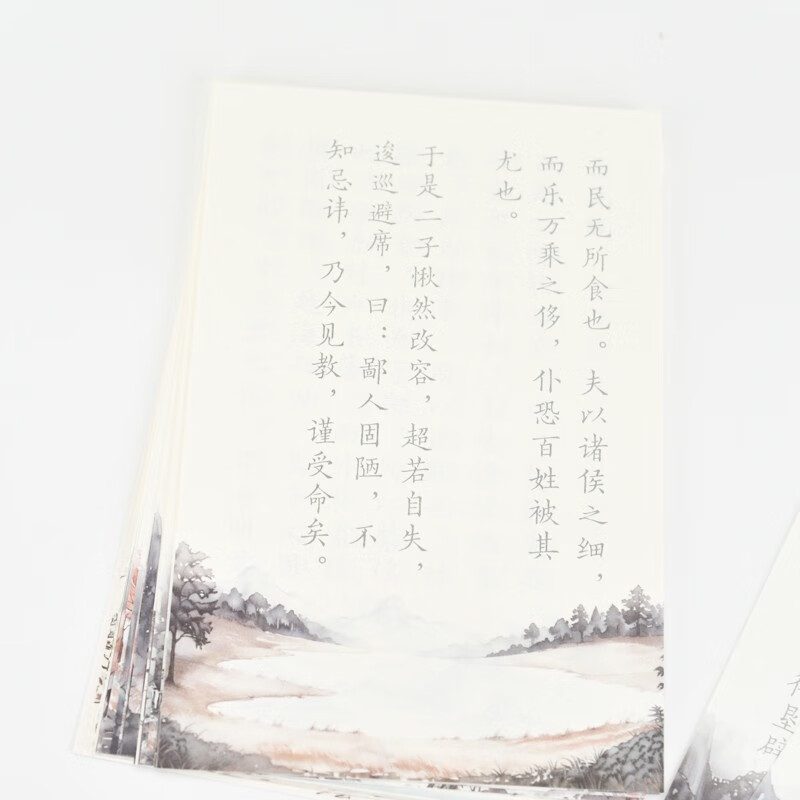 而民无所食也。夫以诸侯之细，
而乐万乘之侈，仆恐百姓被其
尤也。
于是二子愀然改容，超若自失，
逡巡避席，曰：鄙人固陋，不
知忌讳，乃今见教，谨受命矣。
垦辟